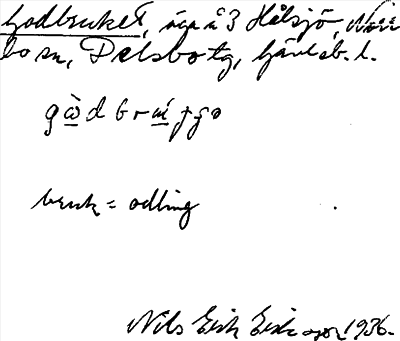 Godbruket, äga å 3 Hålsjö, Norr
bo sn, Delsbo tg, Gävleb. l.
bruk = odling
Nils Erik Eriksson 1936.